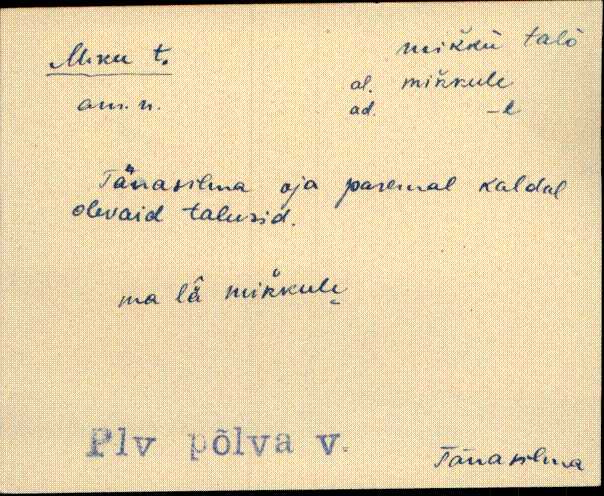 Miku t. mikkü talõ
am. n. al. mikkule
ad. -l
Tännasilma oja paremal kaldal
olevaid talusid.
ma lä̂ mikkule
Plv põlva v.
Tännasilma